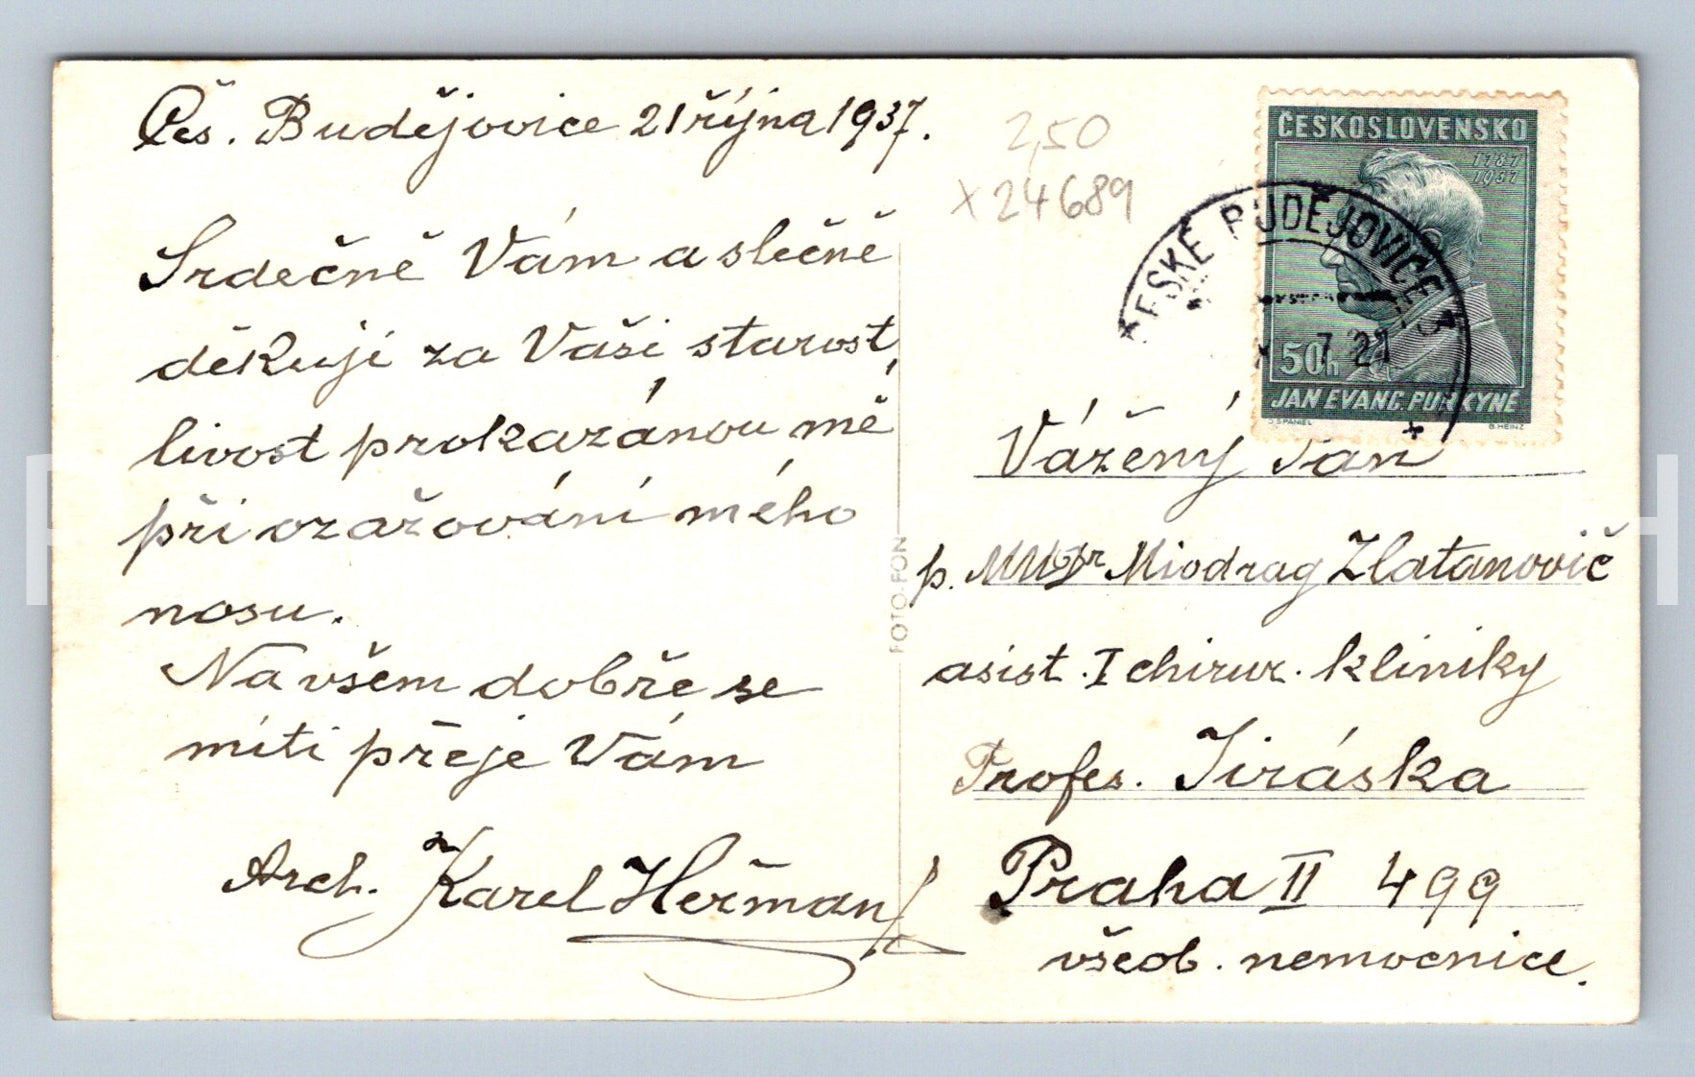 Čes. Budějovice 21 října 1937.
Srdečně Vám a slečně
děkuji za Vaši starost,
livost prokazánou mě
při ozařování mého
nosu.
Na všem dobře se
míti přeje Vám
Arch. Karel Heřman
2,50
x 24689
ČESKOSLOVENSKO
1787
1937
50h
JAN EVANG. PURKYNĚ
O. ŠPANIEL
B. HEINZ
ČESKÉ BUDĚJOVICE
7 21
FOTO-FON
Vážený Pan
p. MUDr Miodrag Zlatanovič
asist. I chirur. kliniky
Profes. Jiráska
Praha II 499
všeob. nemocnice.